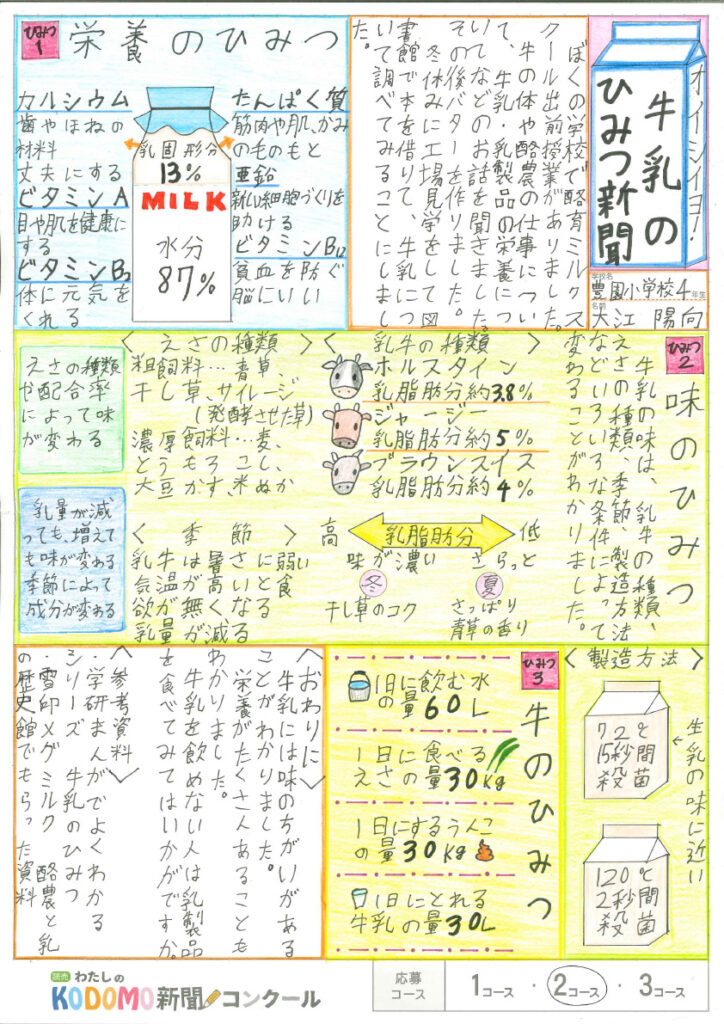 オイシイヨ!
牛乳の
ひみつ新聞
学校名
豊園小学校4年生
名前
大江 陽向
ぼくの学校で酪育ミルクス
クール出前授業がありました。
牛の体や酪農の仕事につい
て、牛乳・乳製品の栄養につ
いてなどのお話を聞きました。
その後バターを作りました。
冬休みに工場見学をして図
書館で本を借りて、牛乳につ
いて調べてみることにしまし
た。
ひみつ1
栄養のひみつ
カルシウム
歯やほねの
材料
丈夫にする
ビタミンA
目や肌を健康に
する
ビタミンB2
体に元気を
くれる
乳固形分
13%
MILK
水分
87%
たんぱく質
筋肉や肌、かみ
のものもと
亜鉛
新しい細胞づくりを
助ける
ビタミンB12
貧血を防ぐ
脳にいい
ひみつ2
味のひみつ
牛乳の味は、乳牛の種類、
えさの種類、季節、製造方法
などいろいろな条件によって
変わることがわかりました。
〈乳牛の種類〉
ホルスタイン
乳脂肪分約3.8%
ジャージー
乳脂肪分約5%
ブラウンスイス
乳脂肪分約4%
〈えさの種類〉
粗飼料…青草、
干し草、サイレージ
(発酵させた草)
濃厚飼料…麦、
とうもろこし、
大豆かす、米ぬか
えさの種類
や配合率
によって味
が変わる
高 乳脂肪分 低
味が濃い さらっと
冬 夏
干し草のコク さっぱり
青草の香り
〈季節〉
乳牛は暑さに弱い
気温が高いと食
欲が無くなる
乳量が減る
乳量が減
っても、増えて
も味が変わる
季節によって
成分が変わる
〈製造方法〉
生乳の味に近い
72℃
15秒間
殺菌
120℃
2秒間
殺菌
ひみつ3
牛のひみつ
1日に飲む水
の量60L
1日に食べる
えさの量30kg
1日にするうんこ
の量30kg
1日にとれる
牛乳の量30L
〈おわりに〉
牛乳には味のちがいがある
ことがわかりました。
栄養がたくさんあることも
わかりました。
牛乳を飲めない人は乳製品
を食べてみてはいかがですか。
〈参考資料〉
・学研まんがでよくわかる
シリーズ 牛乳のひみつ
・雪印メグミルク 酪農と乳
の歴史館でもらった資料
読売 わたしの
KODOMO新聞コンクール
応募
コース
1コース・2コース・3コース